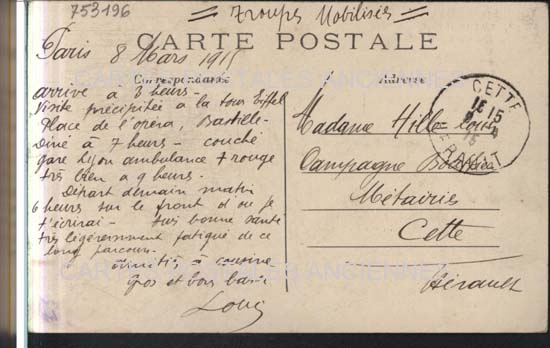 753196
= Troupes Mobilisées =
CARTE POSTALE
Paris 8 Mars 1915
Correspondance
arrivé à 3 heures -
Visite précipitée a la tour Eiffel
Place de l'opéra, Bastille -
Diné a 7 heures - couché
gare Lyon ambulance + rouge
très bien a 9 heures.
Départ demain matin
6 heures sur le front d'ou je
t'écrirai - très bonne santé
très légèrement fatigué de ce
long parcours.
Amitiés à cousine
gros et bons
Louis
Adresse
Madame Hille Louis
Campagne
Métairies
Cette
Hérault
CETTE
15
HERAULT
CARTES POSTALES ANCIENNES
CARTES POSTALES ANCIENNES